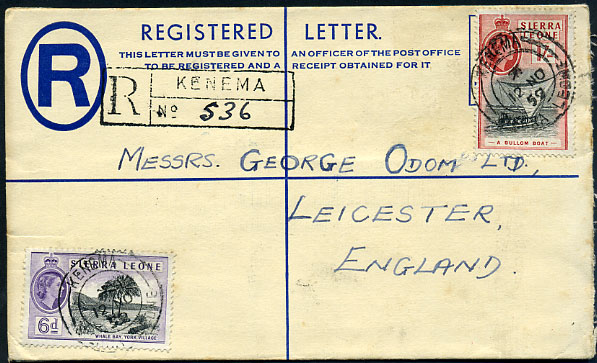 REGISTERED LETTER.
THIS LETTER MUST BE GIVEN TO AN OFFICER OF THE POST OFFICE
TO BE REGISTERED AND A RECEIPT OBTAINED FOR IT
R
R
KENEMA
No 536
SIERRA LEONE
KENEMA
12 NO
59
A BULLOM BOAT
MESSRS. GEORGE ODOM LTD.,
LEICESTER,
ENGLAND.
SIERRA LEONE
KENEMA
12 NO
6d
WHALE BAY, YORK VILLAGE